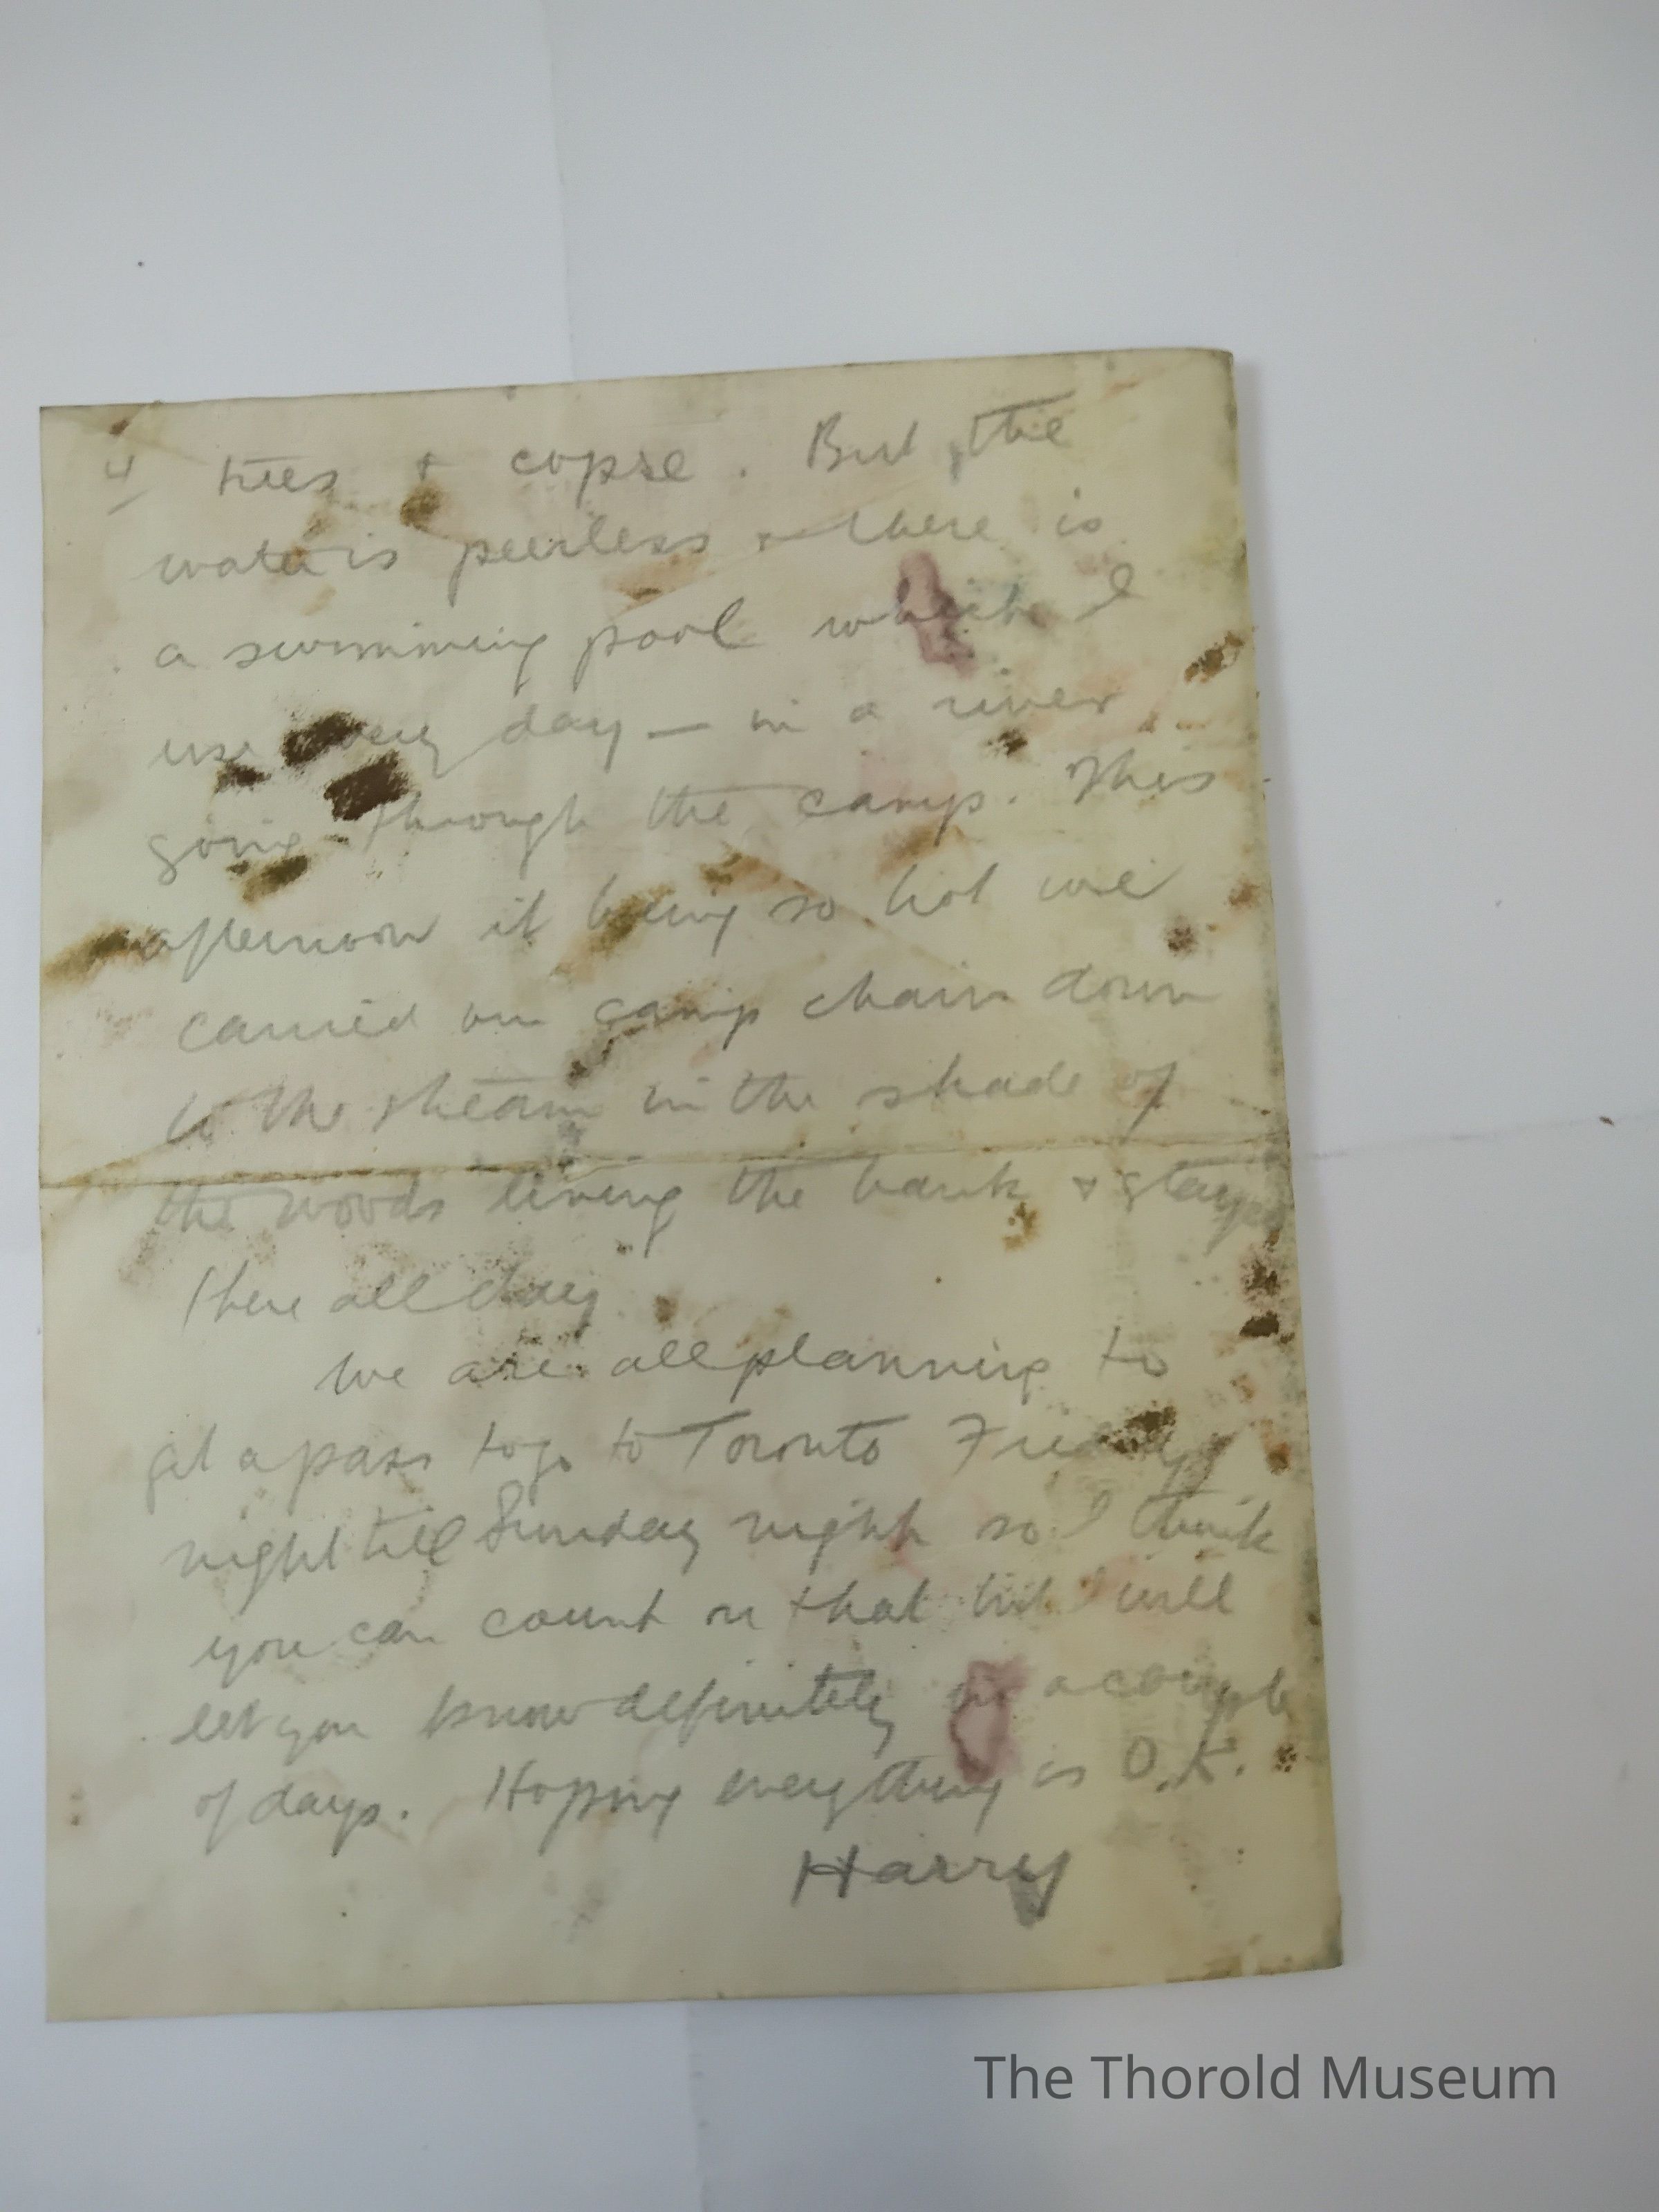 4/ trees + copse. But the
water is peerless + there is
a swimming pool which I
use every day — in a river
going through the camp. This
afternoon it being so hot we
carried our camp chairs down
to the stream in the shade of
the woods lining the bank + stayed
there all day
We are all planning to
get a pass to go to Toronto Friday
night till Sunday night so I think
you can count on that but I will
let you know definitely in a couple
of days. Hoping everything is O.K.
Harry
The Thorold Museum